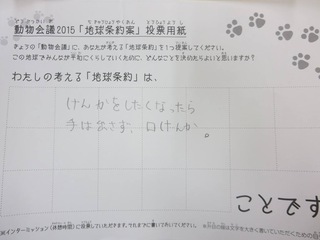 動物会議2015「地球条約案」投票用紙
キョウの「動物会議」に、あなたが考える「地球条約」を1つ提案してください。
この地球でみんなが平和にくらしていくために、どんなことを決めたらよいと思いますか?
わたしの考える「地球条約」は、
けんかをしたくなったら
手は出さず、口げんか。
インターミッション(休憩時間)に投票していただきます。それまでに書いておいてください。